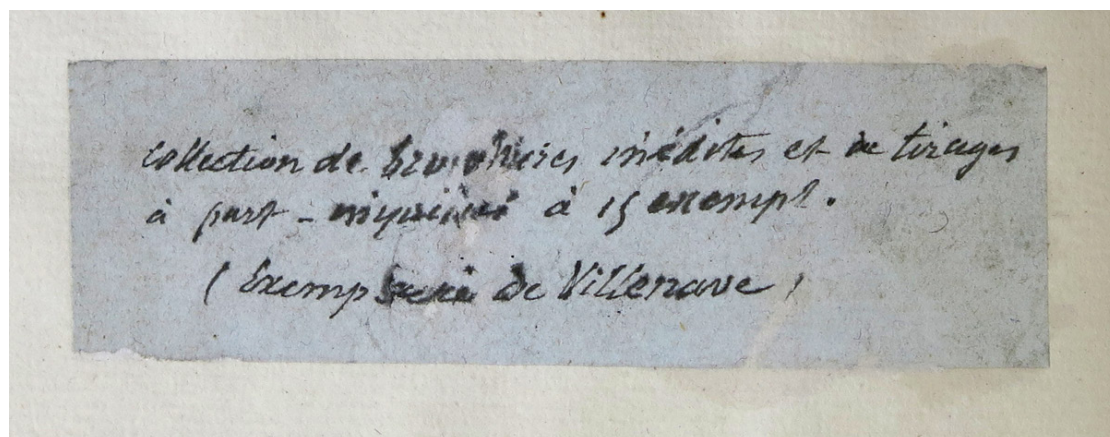 Collection de brochures inédites et de tirages
à part - imprimées à 15 exempl.
(Exemplaire de Villenave)